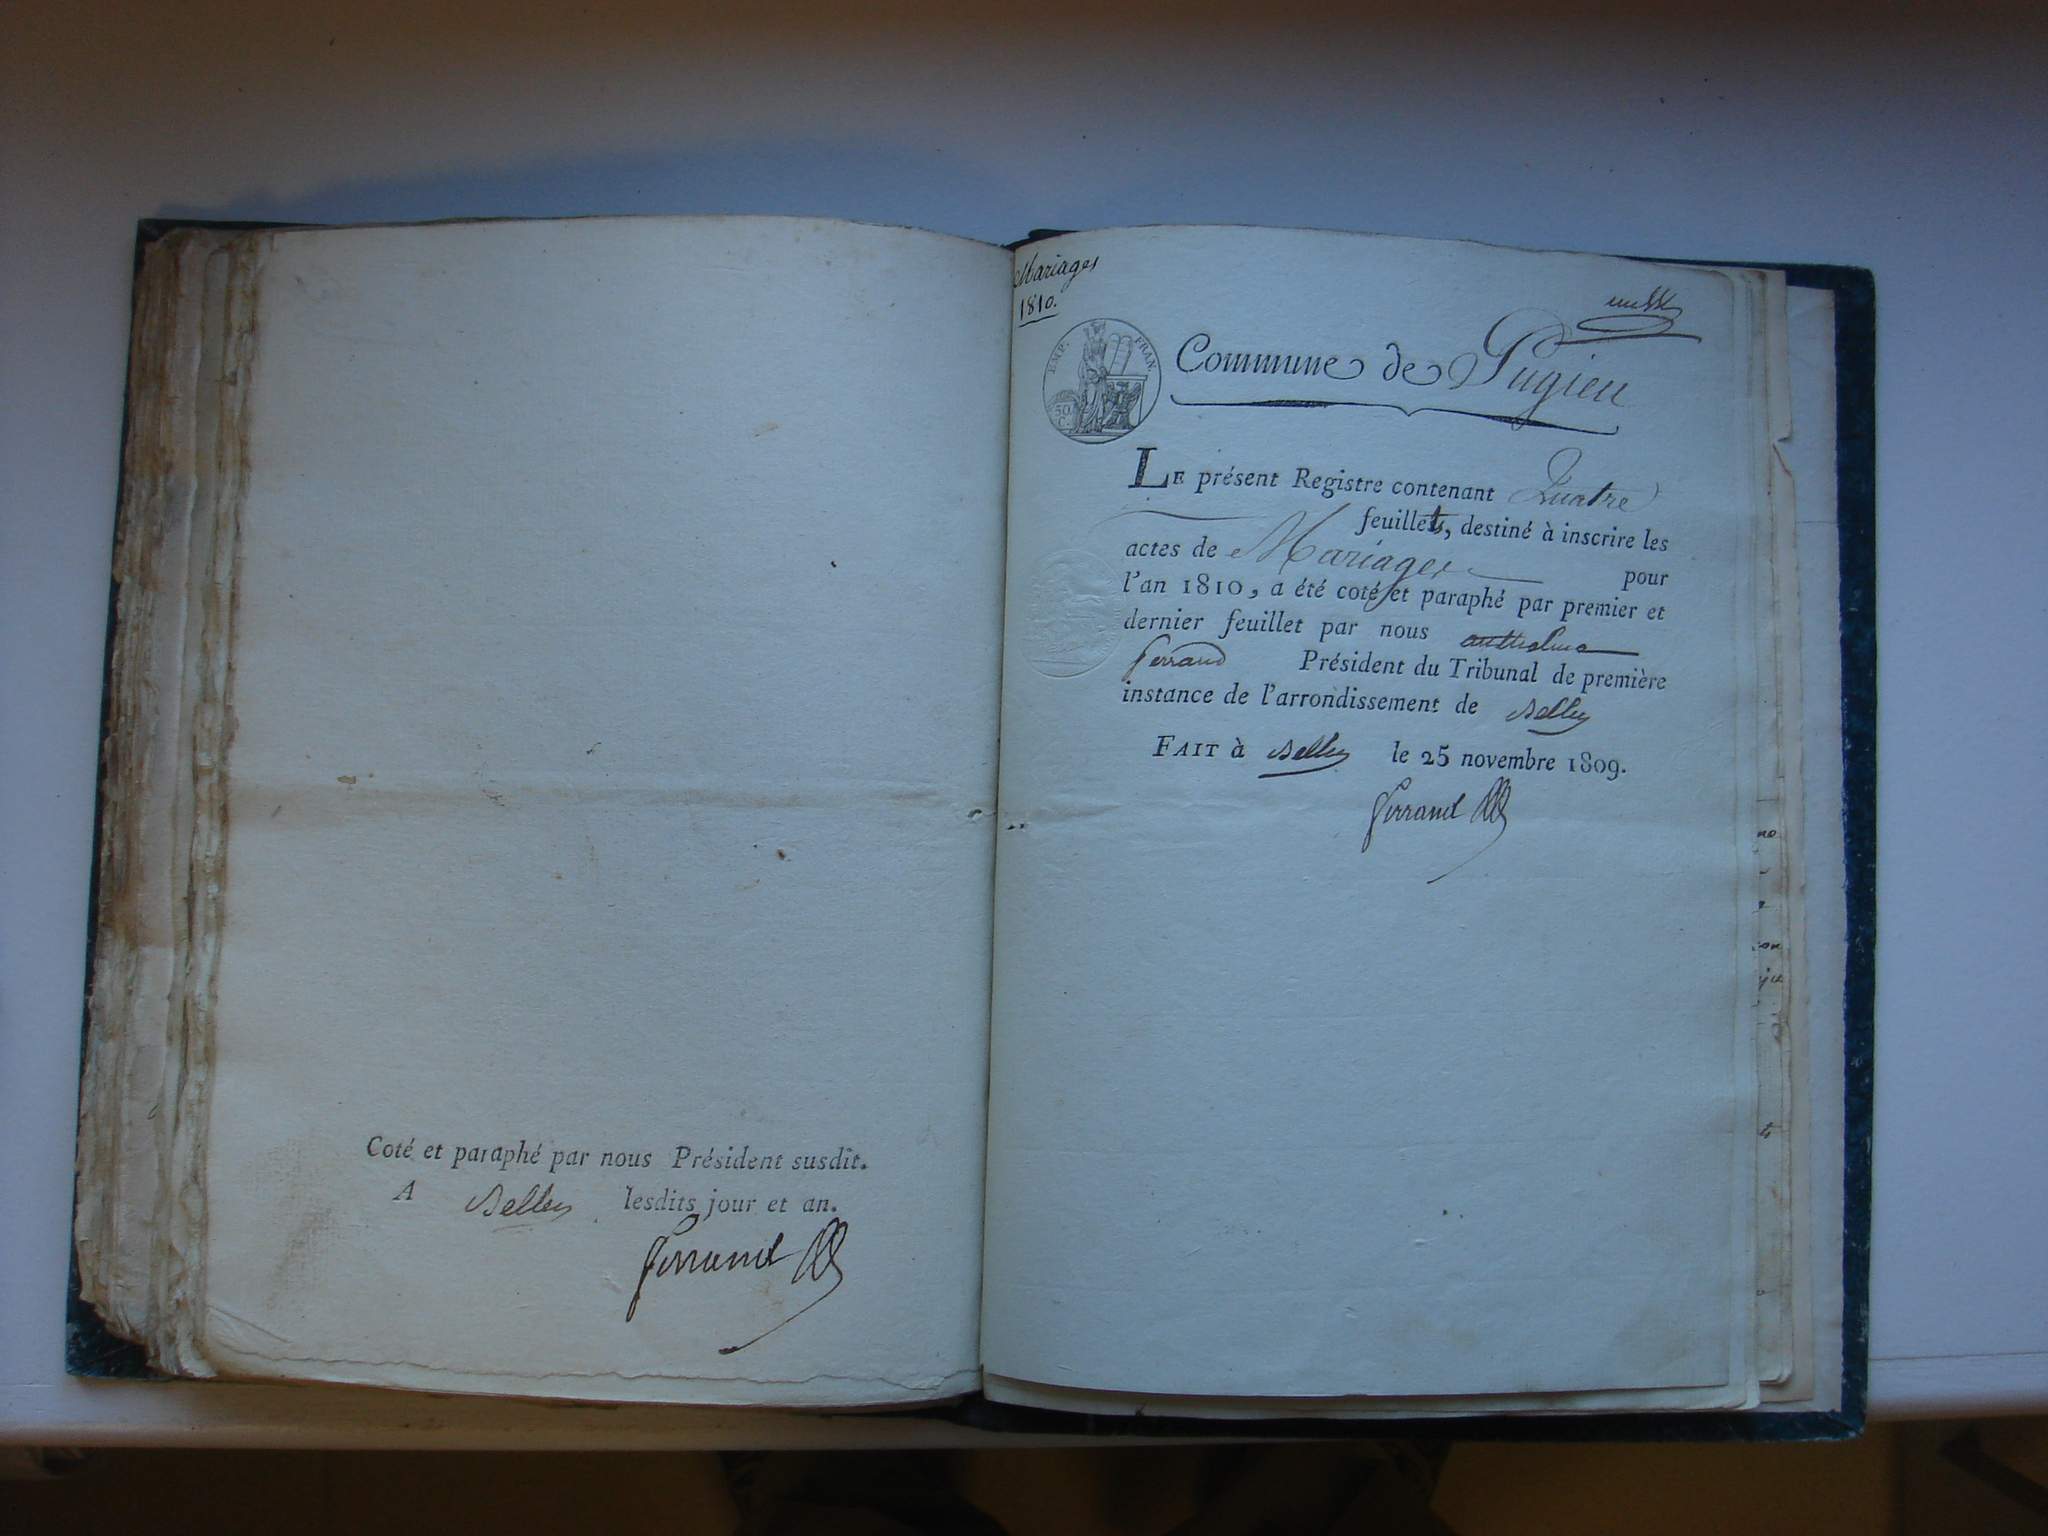 Coté et paraphé par nous Président susdit.
A Belley lesdits jour et an.
Ferrand
Mariages
1810.
EMP. FRAN.
50
C.
Commune de Pugieu
LE présent Registre contenant Quatre
feuillets, destiné à inscrire les
actes de Mariages pour
l'an 1810, a été coté et paraphé par premier et
dernier feuillet par nous anthelme
ferrand Président du Tribunal de première
instance de l'arrondissement de Belley
FAIT à Belley le 25 novembre 1809.
Ferrand